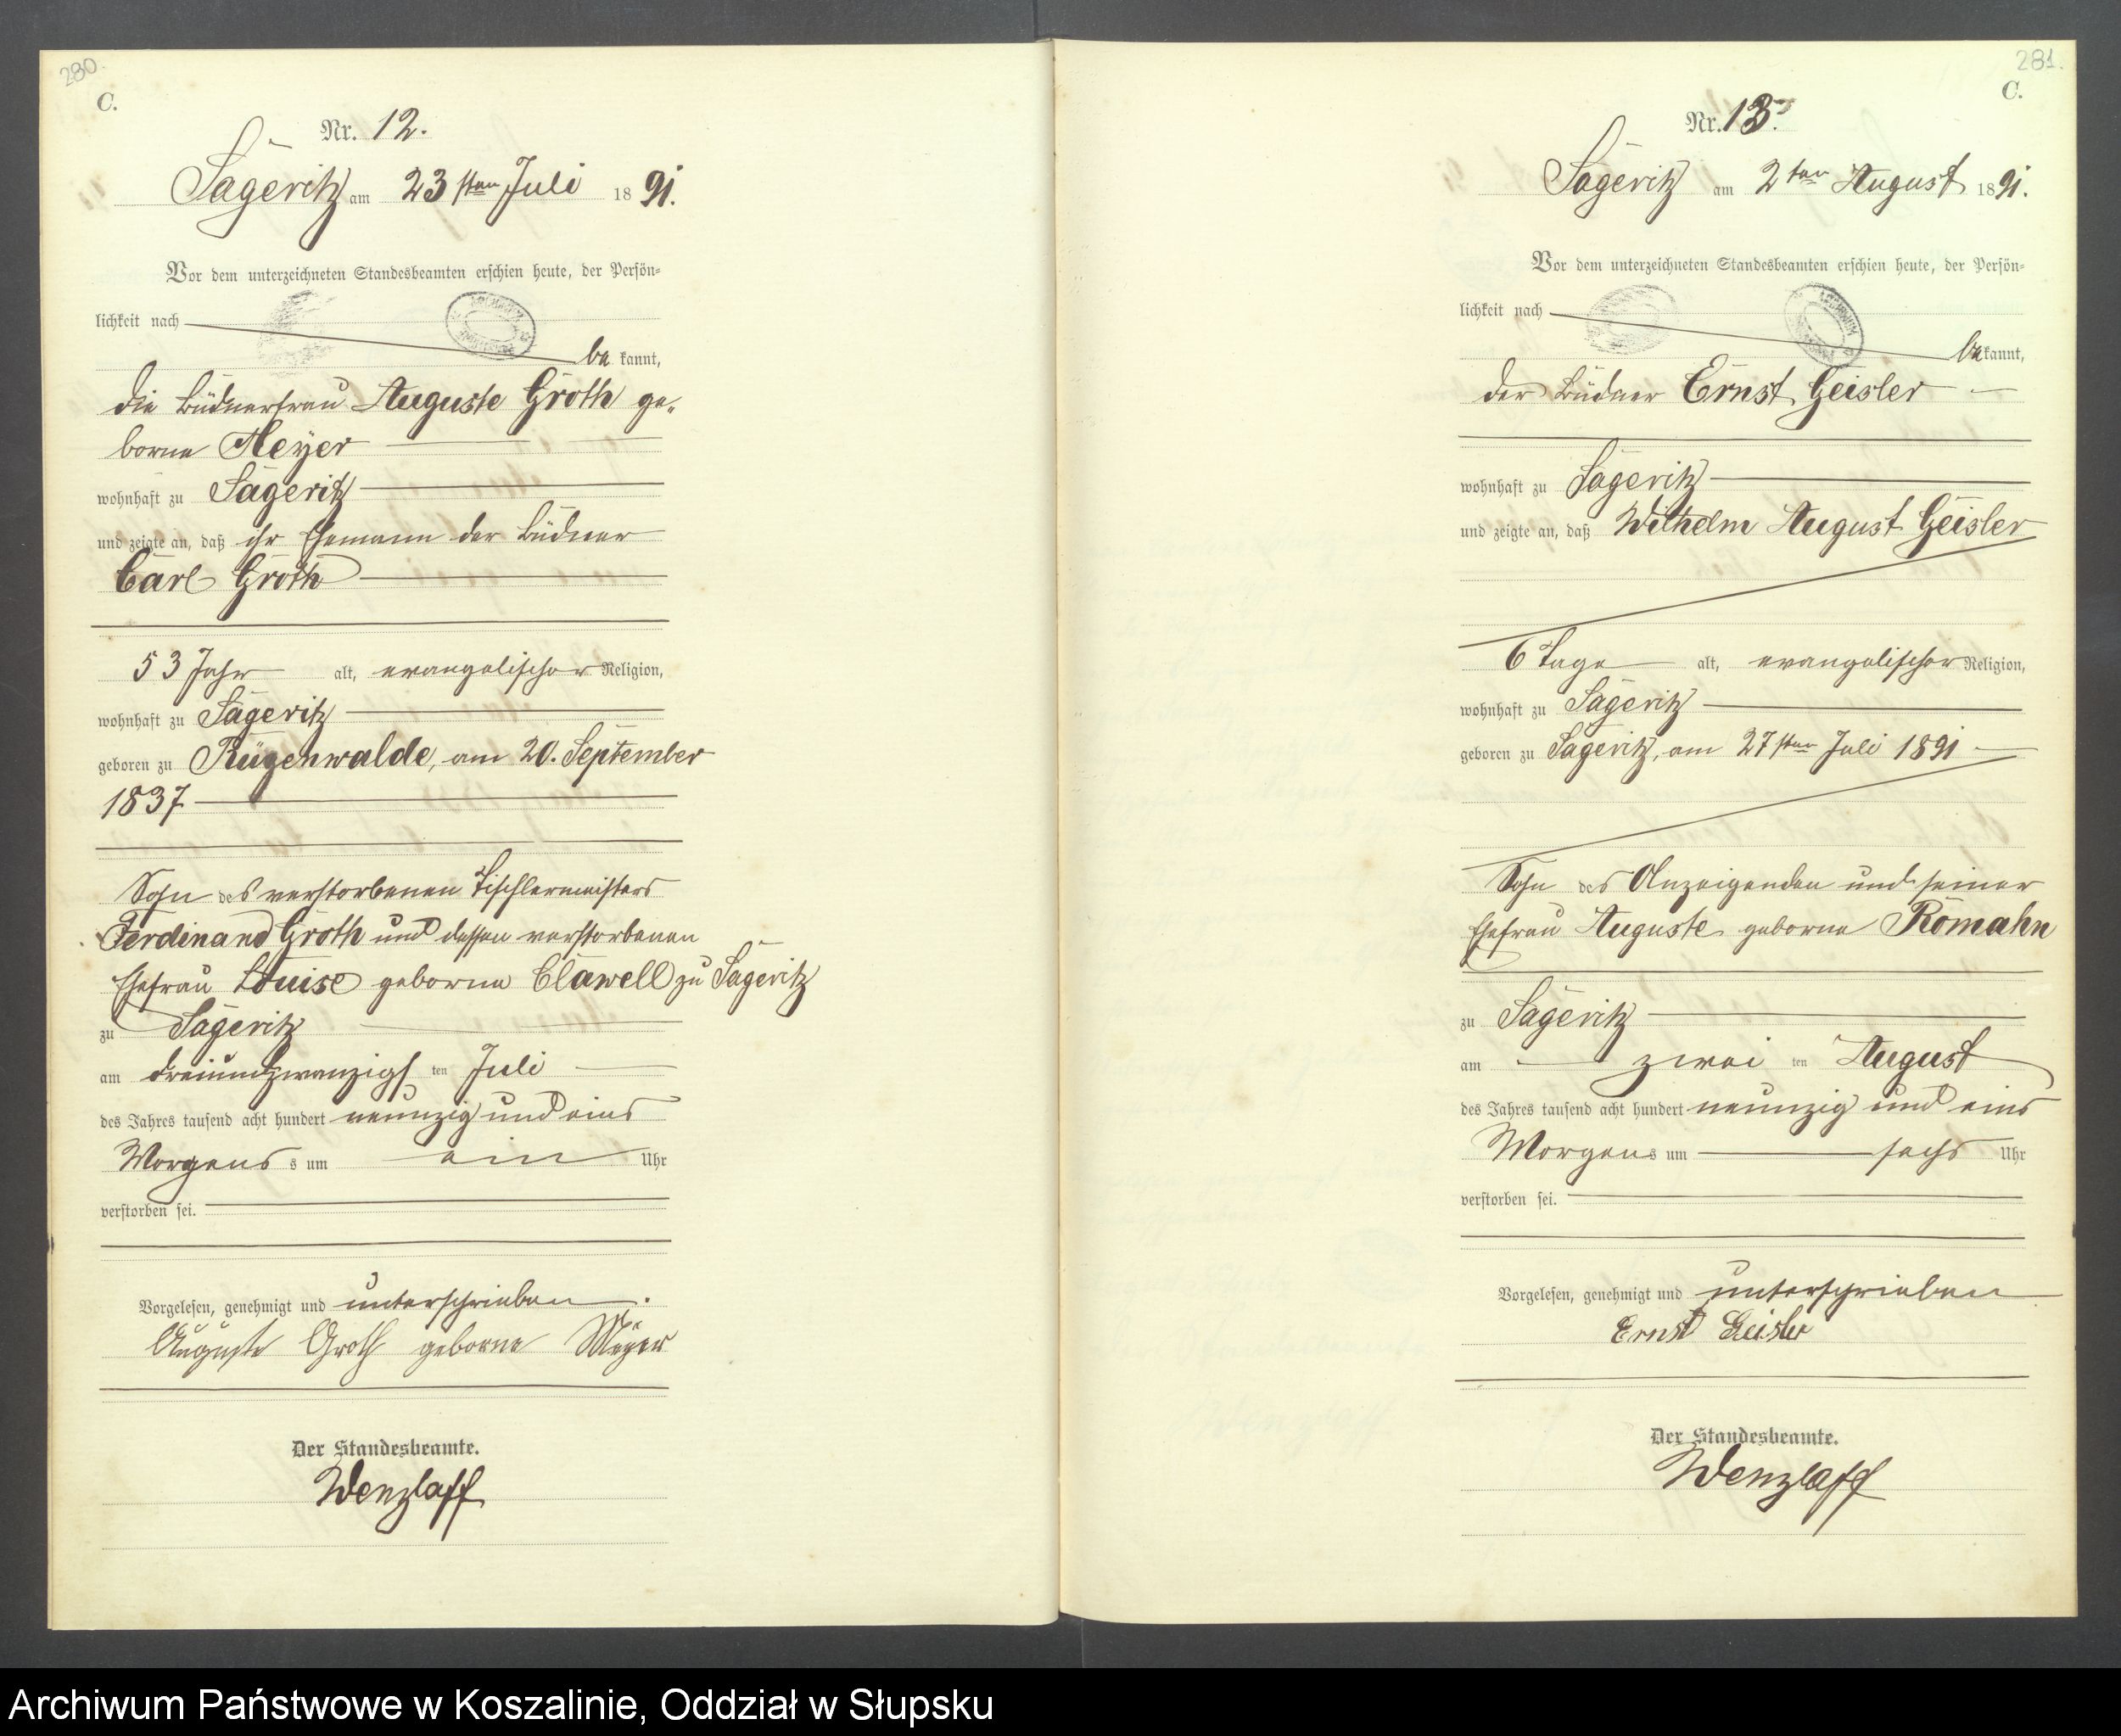 280.
C.
Nr. 12.
Sageritz am 23sten Juli 1891.
Vor dem unterzeichneten Standesbeamten erschien heute, der Persön-
lichkeit nach
bekannt,
die Büdnerfrau Auguste Groth ge-
borne Meyer
wohnhaft zu Sageritz
und zeigte an, daß ihr Ehemann der Büdner
Carl Groth
53 Jahr alt, evangelischer Religion,
wohnhaft zu Sageritz
geboren zu Rügenwalde, am 20. September
1837
Sohn des verstorbenen Tischlermeisters
Ferdinand Groth und dessen verstorbenen
Ehefrau Louise geborne Clawell zu Sageritz
zu Sageritz
am dreiundzwanzigsten Juli
des Jahres tausend acht hundert neunzig und eins
Morgens s um ein Uhr
verstorben sei.
Vorgelesen, genehmigt und unterschrieben.
Auguste Groth geborne Meyer
Der Standesbeamte.
Wenzlaff
281.
C.
Nr. 13.
Sageritz am 2ten August 1891.
Vor dem unterzeichneten Standesbeamten erschien heute, der Persön-
lichkeit nach
bekannt,
der Büdner Ernst Geisler
wohnhaft zu Sageritz
und zeigte an, daß Wilhelm August Geisler
6 Tage alt, evangelischer Religion,
wohnhaft zu Sageritz
geboren zu Sageritz, am 27sten Juli 1891
Sohn des Anzeigenden und seiner
Ehefrau Auguste geborne Romahn
zu Sageritz
am zweiten August
des Jahres tausend acht hundert neunzig und eins
Morgens um sechs Uhr
verstorben sei.
Vorgelesen, genehmigt und unterschrieben
Ernst Geisler
Der Standesbeamte.
Wenzlaff
Archiwum Państwowe w Koszalinie, Oddział w Słupsku